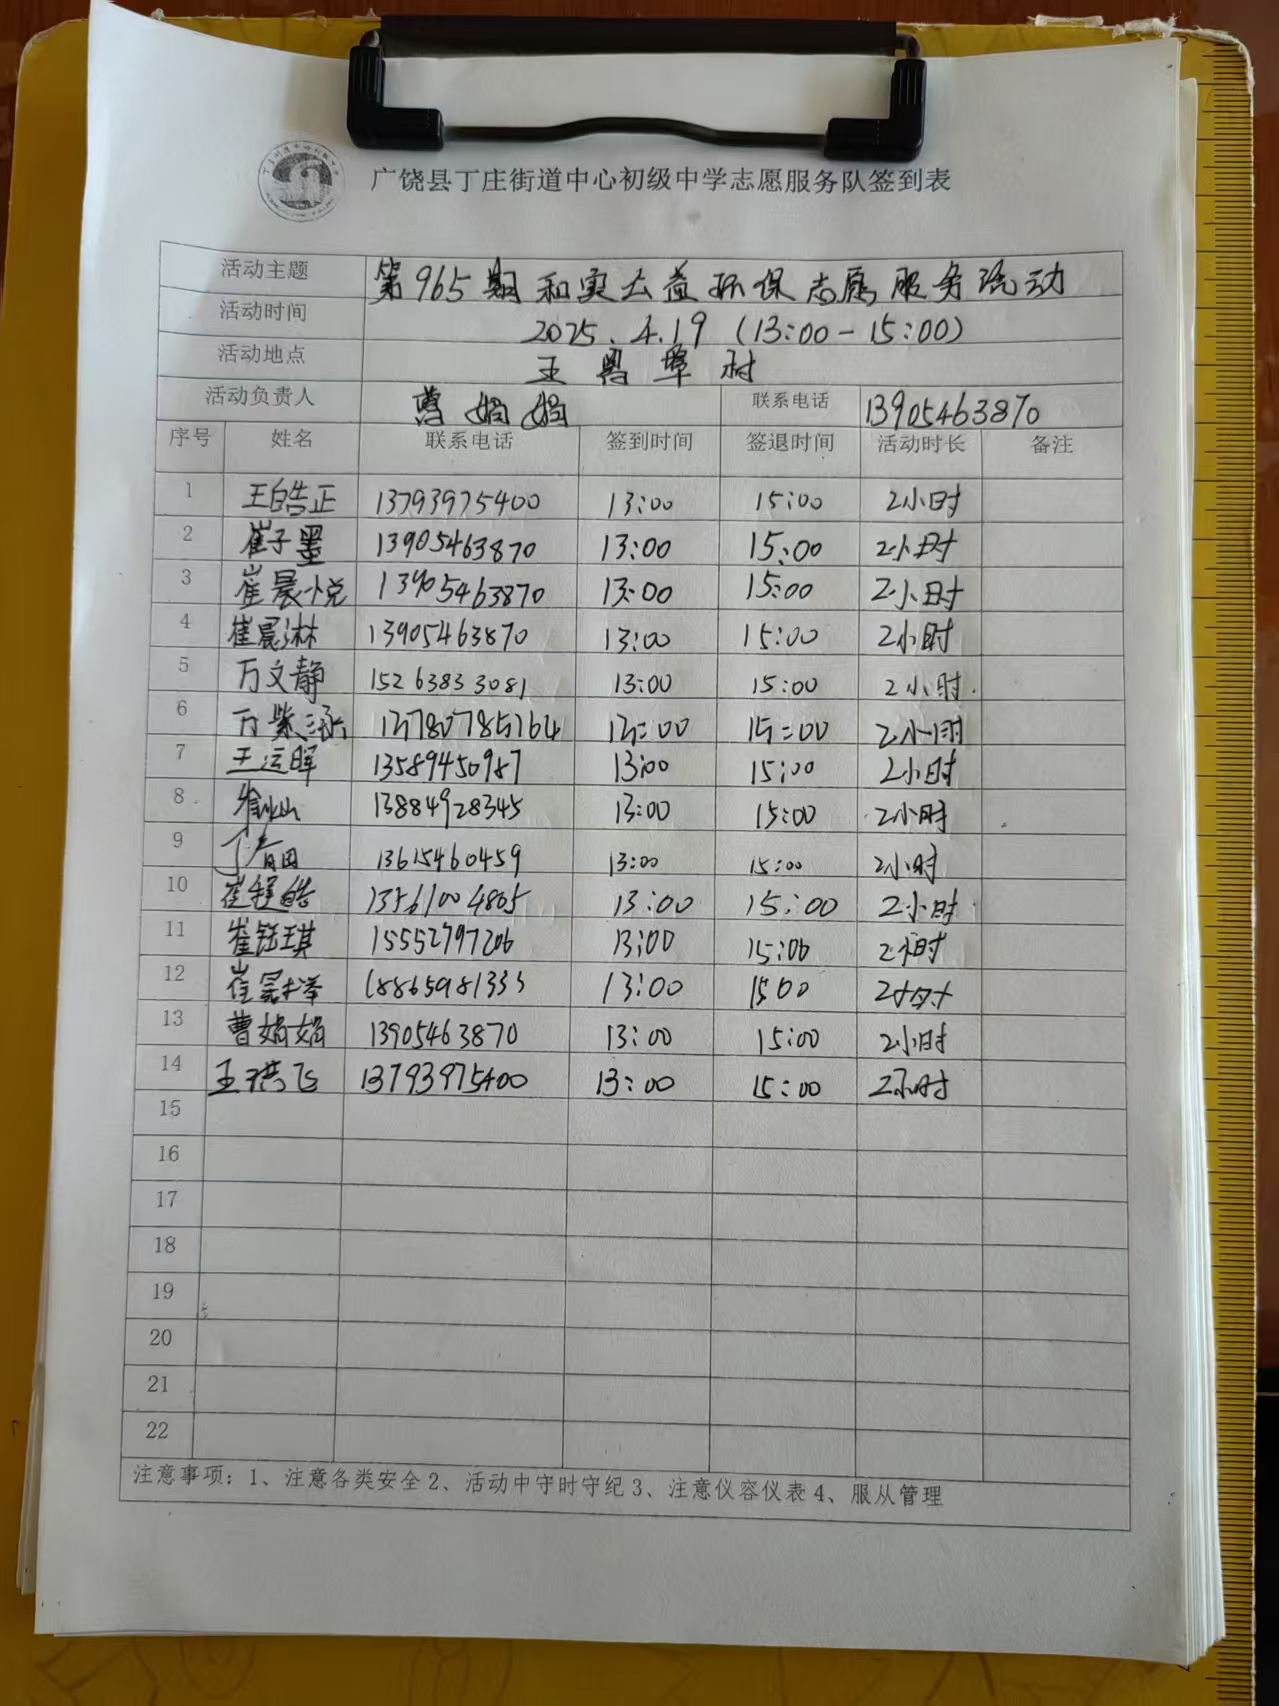 广饶县丁庄街道中心初级中学志愿服务队签到表
活动主题 第965期和寅公益环保志愿服务活动
活动时间 2025.4.19 (13:00-15:00)
活动地点 王 埠村
活动负责人 曹娟娟 联系电话 13905463870
序号 姓名 联系电话 签到时间 签退时间 活动时长 备注
1 王皓正 13793975400 13:00 15:00 2小时
2 崔子墨 13905463870 13:00 15:00 2小时
3 崔晨悦 13905463870 13:00 15:00 2小时
4 崔晨淋 13905463870 13:00 15:00 2小时
5 万文静 15263833081 13:00 15:00 2小时
6 万紫涵 13:00 15:00 2小时
7 王运晖 13589450987 13:00 15:00 2小时
8 13884928345 13:00 15:00 2小时
9 丁 13615460459 13:00 15:00 2小时
10 崔程皓 13561004865 13:00 15:00 2小时
11 崔钰琪 15552797206 13:00 15:00 2小时
12 崔 18865981333 13:00 15:00 2小时
13 曹娟娟 13905463870 13:00 15:00 2小时
14 王洪飞 13793975400 13:00 15:00 2小时
15
16
17
18
19
20
21
22
注意事项：1、注意各类安全2、活动中守时守纪3、注意仪容仪表4、服从管理